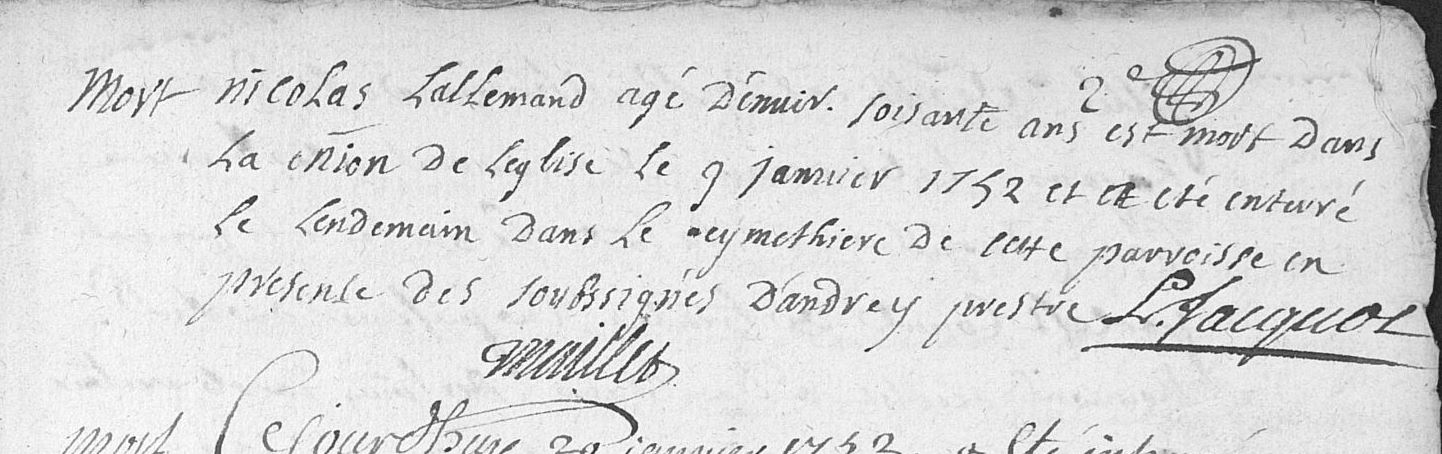 2e
Mort nicolas Lallemand agé d'énvir. soisante ans est mort dans
La c̄nion de Leglise Le 9 janvier 1752 et a eté enterré
Le Lendemain dans Le ceymethiere de cette parroisse en
presence des soubssignés Dandrey prestre L. Jacquot
maillet
mort Cejourdhuy janvier 1752 a Eté